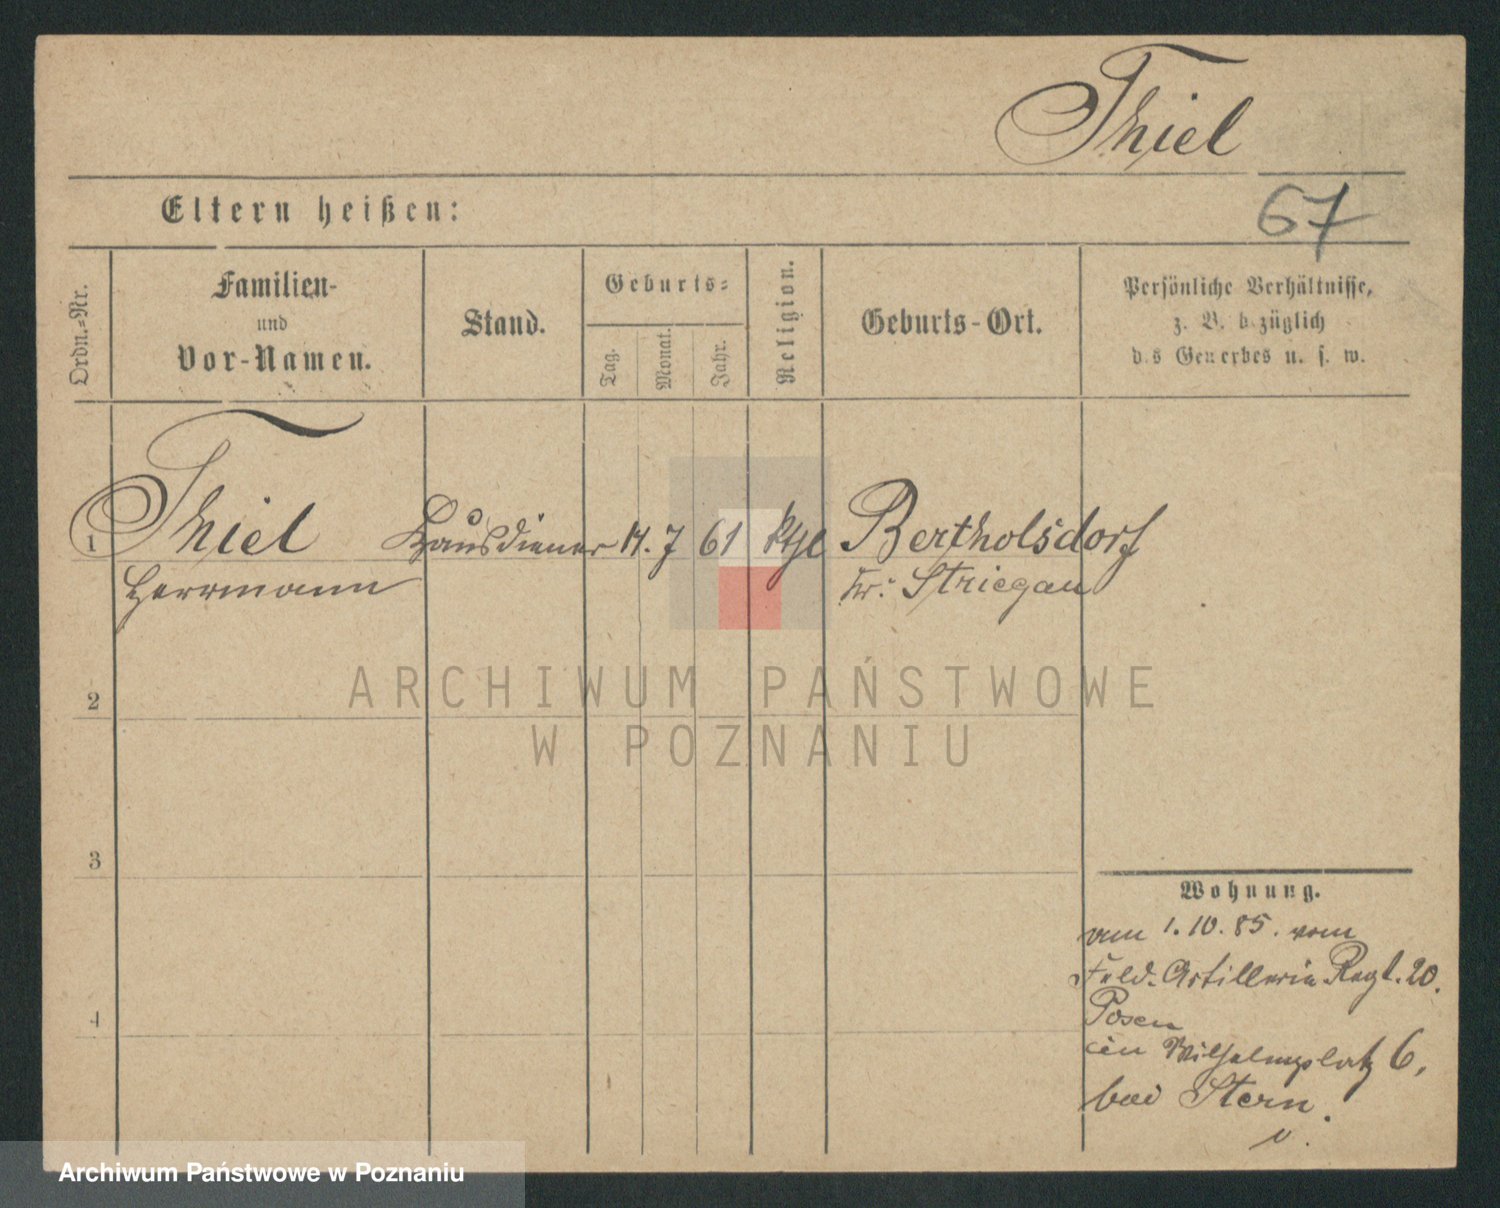 Thiel
67
Eltern heißen:
Ordn.-Nr.
Familien-
und
Vor-Namen.
Stand.
Geburts-
Tag.
Monat.
Jahr.
Religion.
Geburts-Ort.
Persönliche Verhältnisse,
z. B. bezüglich
des Gewerbes u. s. w.
1 Thiel Hausdiener 14. 7 61 ktgl Bertholsdorf
Herrmann Kr. Striegau
2
3
4
Wohnung.
am 1.10.85. vom
Feld. Artillerie Regt. 20.
Posen
in Wilhelmsplatz 6,
bei Stern.
ARCHIWUM PAŃSTWOWE
W POZNANIU
Archiwum Państwowe w Poznaniu